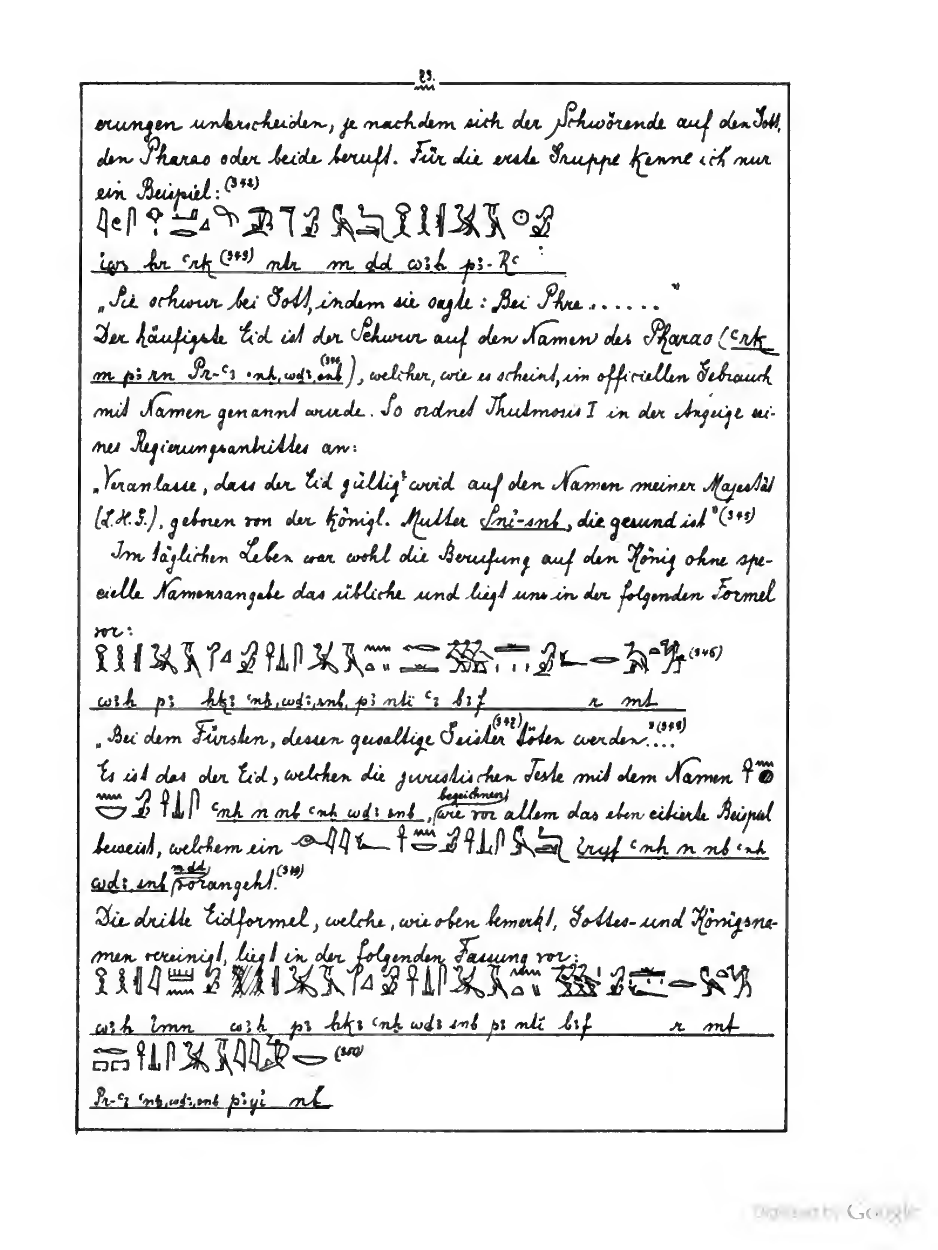 89.
erungen unterscheiden, je nachdem sich der Schwörende auf den Gott,
den Pharao oder beide beruft. Für die erste Gruppe kenne ich nur
ein Beispiel: (342)
iws hr ꜥrk (343) ntr m dd w3h p3-Rꜥ
„Sie schwur bei Gott, indem sie sagte: Bei Phre ......"
Der häufigste Eid ist der Schwur auf den Namen des Pharao (ꜥrk
m p3 rn Pr-ꜥ3 ꜥnh, wd3, snb (344)), welcher, wie es scheint, im officiellen Gebrauch
mit Namen genannt wurde. So ordnet Thutmosis I in der Anzeige sei-
nes Regierungsantrittes an:
„Veranlasse, dass der Eid gültig wird auf den Namen meiner Majestät
(L.H.G.), geboren von der königl. Mutter Sni-snb, die gesund ist" (345)
Im täglichen Leben war wohl die Berufung auf den König ohne spe-
cielle Namensangabe das übliche und liegt uns in der folgenden Formel
vor:
(346)
w3h p3 hk3 ꜥnh, wd3, snb, p3 nti ꜥ3 b3f r mt
„Bei dem Fürsten, dessen gewaltige Geister (347) töten werden...." (348)
Es ist das der Eid, welchen die juristischen Texte mit dem Namen
ꜥnh n nb ꜥnh wd3 snb bezeichnen, wie vor allem das eben citierte Beispiel
beweist, welchem ein iryf ꜥnh n nb ꜥnh
wd3, snb m dd vorangeht. (349)
Die dritte Eidformel, welche, wie oben bemerkt, Gottes- und Königsna-
men vereinigt, liegt in der folgenden Fassung vor:
w3h imn w3h p3 hk3 ꜥnh wd3 snb p3 nti b3f r mt
(350)
Pr-ꜥ3 ꜥnh, wd3, snb p3yi nb
Digitized by Google